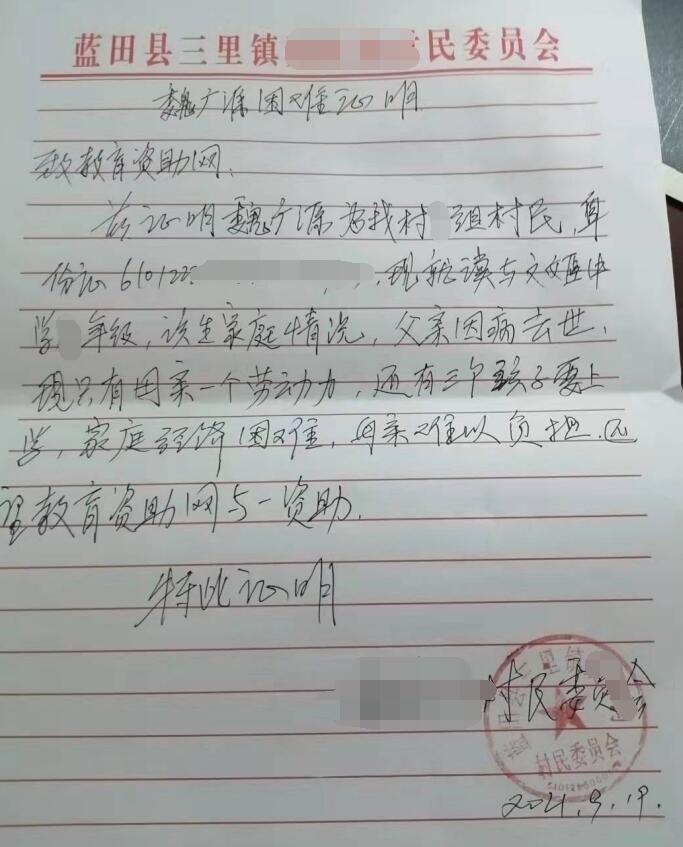 蓝田县三里镇 村民委员会
魏广源困难证明
致教育资助网:
兹证明魏广源为我村 组村民,身
份证610122 ,现就读与文姬中
学 年级,该生家庭情况,父亲因病去世、
现只有母亲一个劳动力,还有三个孩子要上
学,家庭经济困难,母亲难以负担.
望教育资助网与一资助.
特此证明
村民委员会
三里镇
村民委员会
2021.9.19.